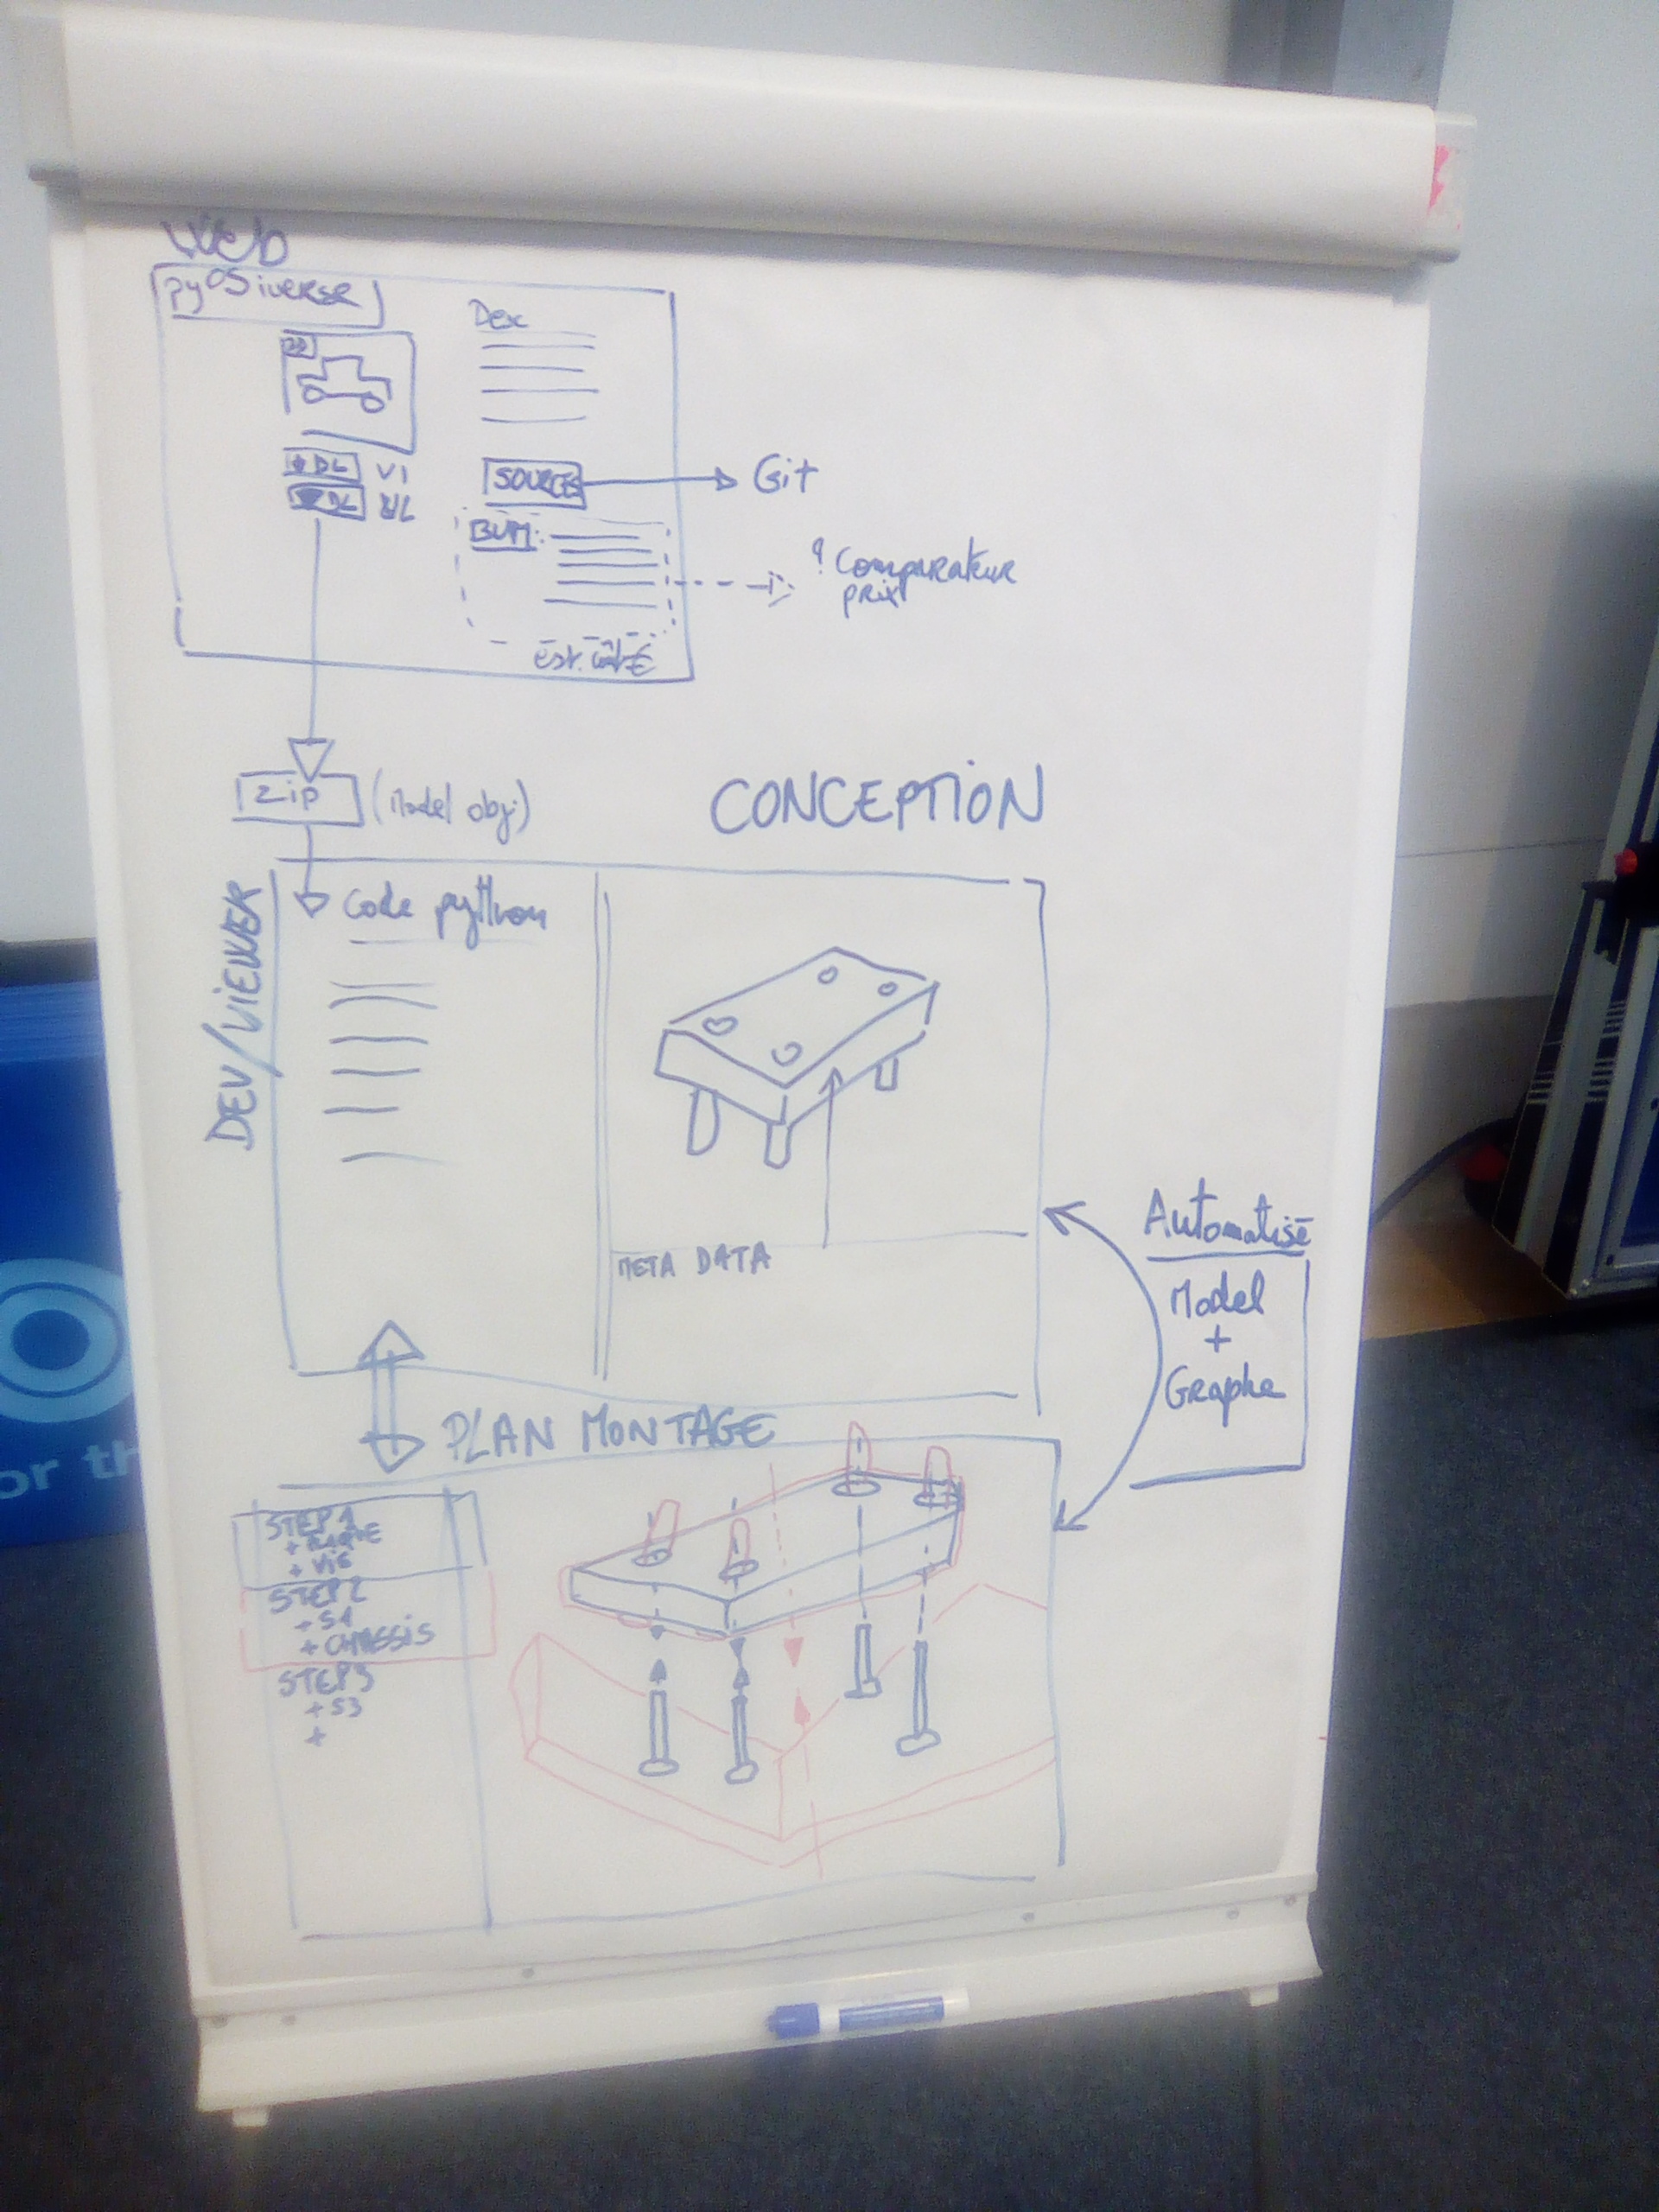 Web
pyOSiverse
Des
↓DL V1
DL
SOURCES
Git
BOM:
? Comparateur
prix
est. coût €
Zip
(Model obj)
CONCEPTION
DEV/VIEWER
Code python
META DATA
Automatisé
Model
+
Graphe
PLAN MONTAGE
STEP1
+ PLAQUE
+ VIS
STEP2
+ S1
+ CHASSIS
STEP3
+ S3
+
or th